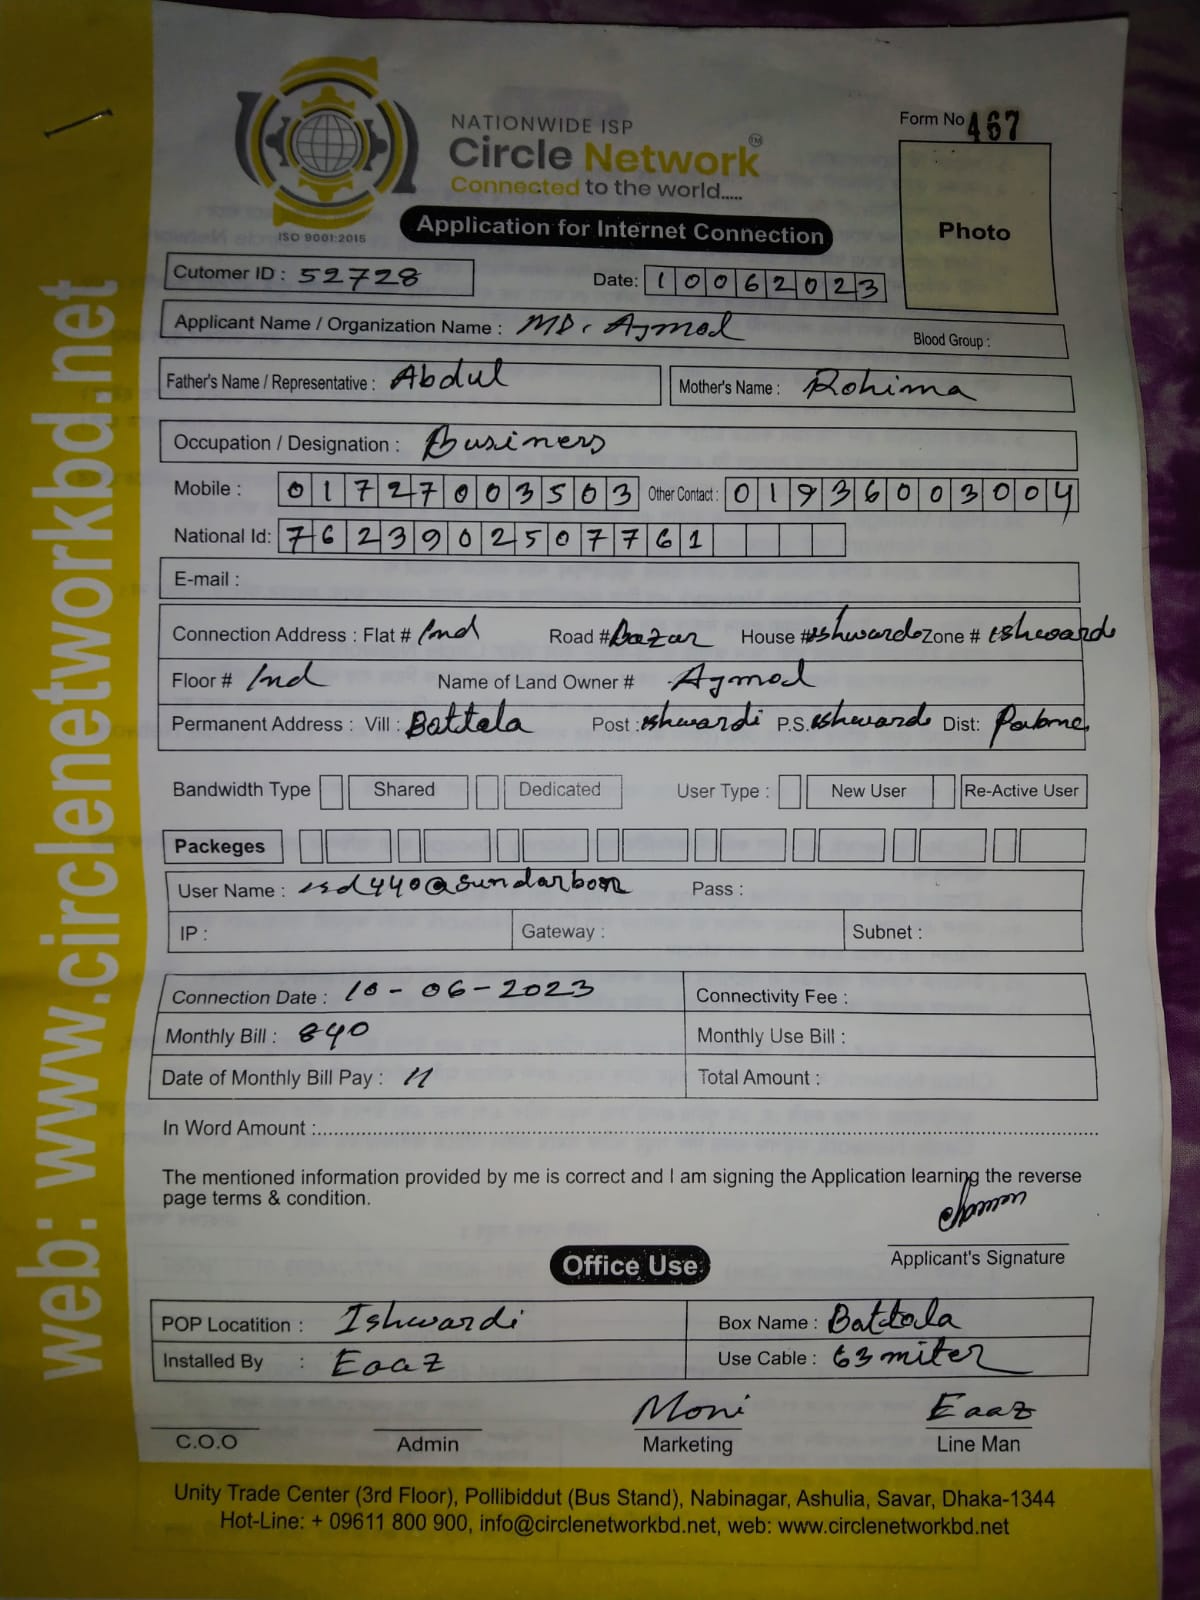 web: www.circlenetworkbd.net
NATIONWIDE ISP
Circle Network™
Connected to the world.....
ISO 9001:2015
Form No 467
Photo
Application for Internet Connection
Cutomer ID : 52728 Date: 10062023
Applicant Name / Organization Name : MD. Aymod Blood Group :
Father's Name / Representative : Abdul Mother's Name : Rohima
Occupation / Designation : Business
Mobile : 01727003503 Other Contact : 01936003004
National Id: 7623902507761
E-mail :
Connection Address : Flat # Ind Road # Bazar House # ishwardo Zone # ishwardo
Floor # Ind Name of Land Owner # Aymod
Permanent Address : Vill : Battala Post : ishwardi P.S. ishwardo Dist: Pabna
Bandwidth Type Shared Dedicated User Type : New User Re-Active User
Packeges
User Name : isd440@sundarbon Pass :
IP : Gateway : Subnet :
Connection Date : 10-06-2023 Connectivity Fee :
Monthly Bill : 840 Monthly Use Bill :
Date of Monthly Bill Pay : 11 Total Amount :
In Word Amount :
The mentioned information provided by me is correct and I am signing the Application learning the reverse
page terms & condition.
Applicant's Signature
Office Use
POP Locatition : Ishwardi Box Name : Battala
Installed By : Eaaz Use Cable : 63 miter
Moni Eaaz
C.O.O Admin Marketing Line Man
Unity Trade Center (3rd Floor), Pollibiddut (Bus Stand), Nabinagar, Ashulia, Savar, Dhaka-1344
Hot-Line: + 09611 800 900, info@circlenetworkbd.net, web: www.circlenetworkbd.net